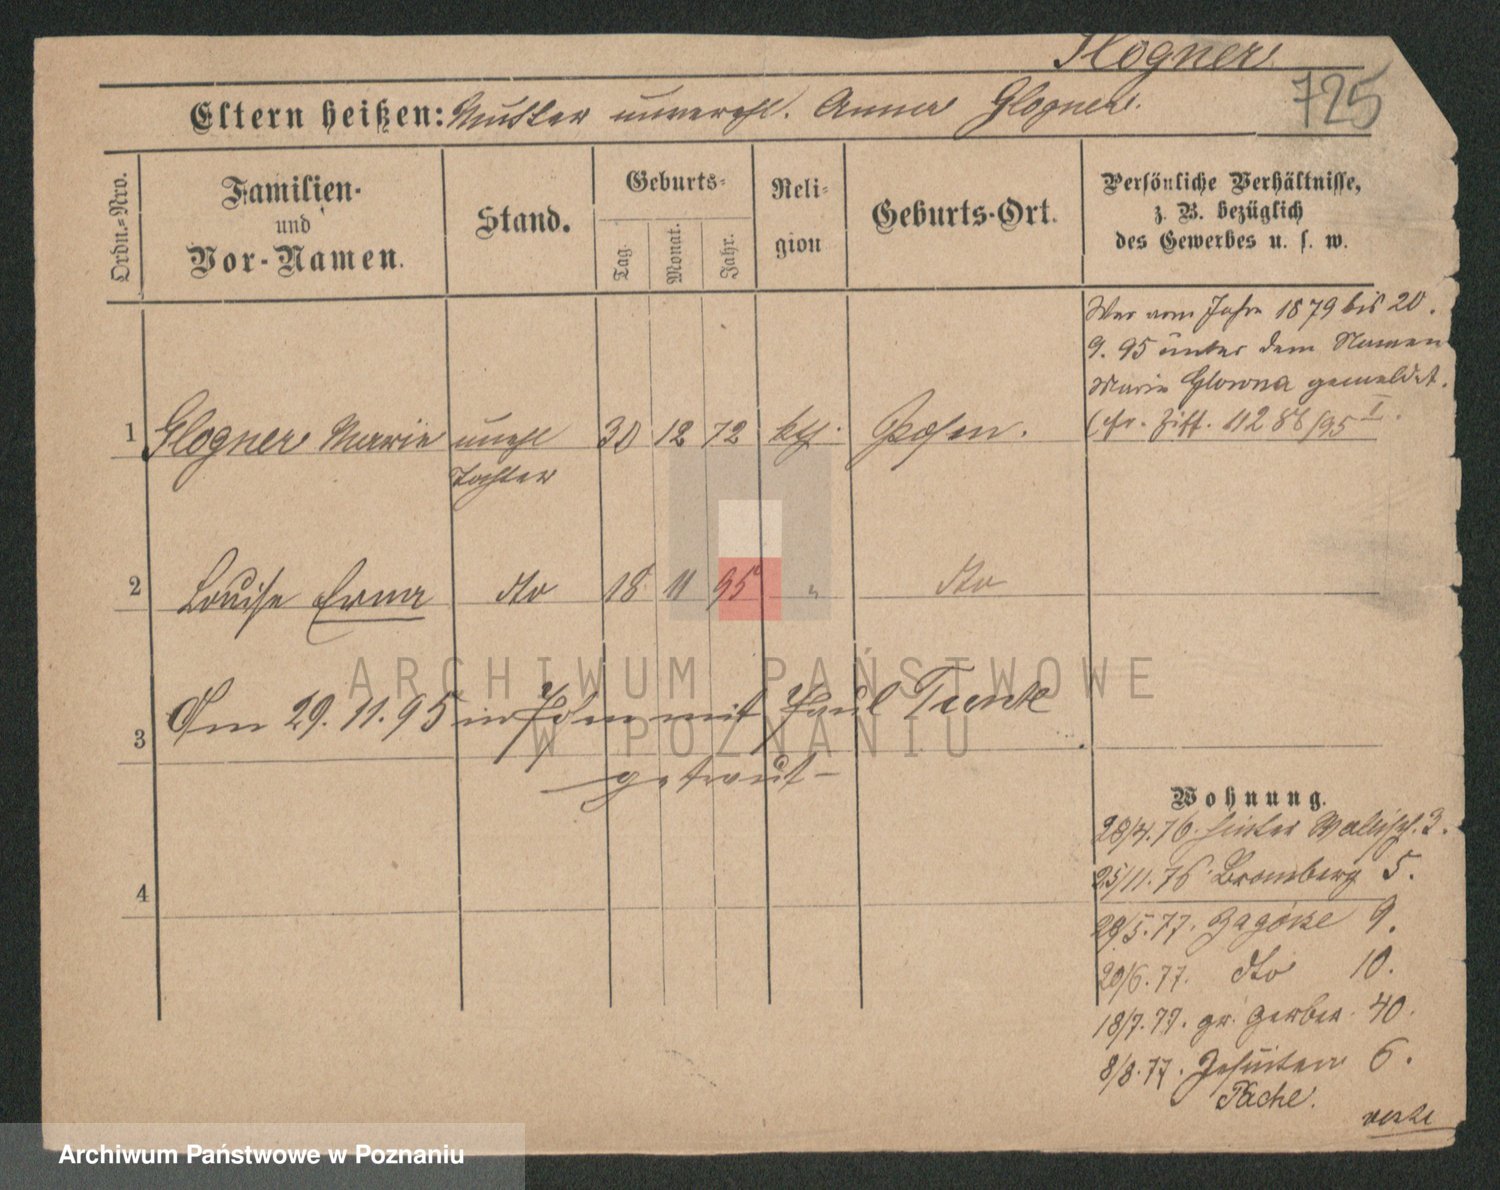 Glogner
725
Eltern heißen: Mutter unverehl. Anna Glogner.
Ordn.-Nro.
Familien-
und
Vor-Namen.
Stand.
Geburts-
Tag.
Monat.
Jahr.
Reli-
gion
Geburts-Ort.
Persönliche Verhältnisse,
z. B. bezüglich
des Gewerbes u. s. w.
War vom Jahre 1879 bis 20.
9. 95 unter dem Namen
Marie Glowna gemeldet.
(cfr. Ziff. 11288/95 I.
1 Glogner Marie unehl 30 12 72 kth. Posen.
Tochter
2 Louise Erna dto 18 11 95 " dto
3 Am 29.11.95 in Posen mit Paul
getraut
4
Wohnung.
28/4.76. hinter Wallisch. 3.
25/11.76 Bromberg 5.
29/5.77. Zagórze 9.
20/6.77. dto 10.
18/7.77. gr. Gerber. 40.
8/8.77. Jesuiten 6.
verte
ARCHIWUM PAŃSTWOWE
W POZNANIU
Archiwum Państwowe w Poznaniu